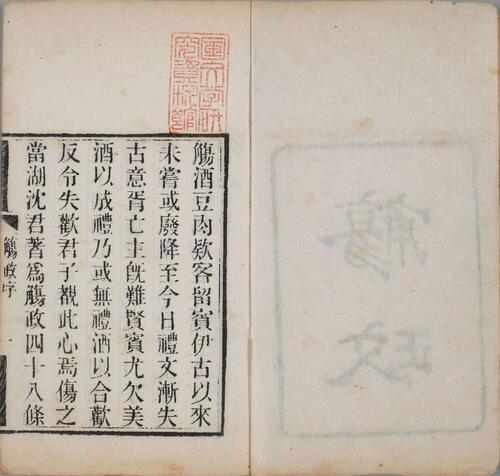 觴政
國文學研
究資料館
觴酒豆肉欵客留賓伊古以來
未嘗或廢降至今日禮文漸失
古意胥亡主旣難賢賓尤欠美
酒以成禮乃或無禮酒以合歡
反令失歡君子覩此心焉傷之
當湖沈君著爲觴政四十八條
觴政序
一